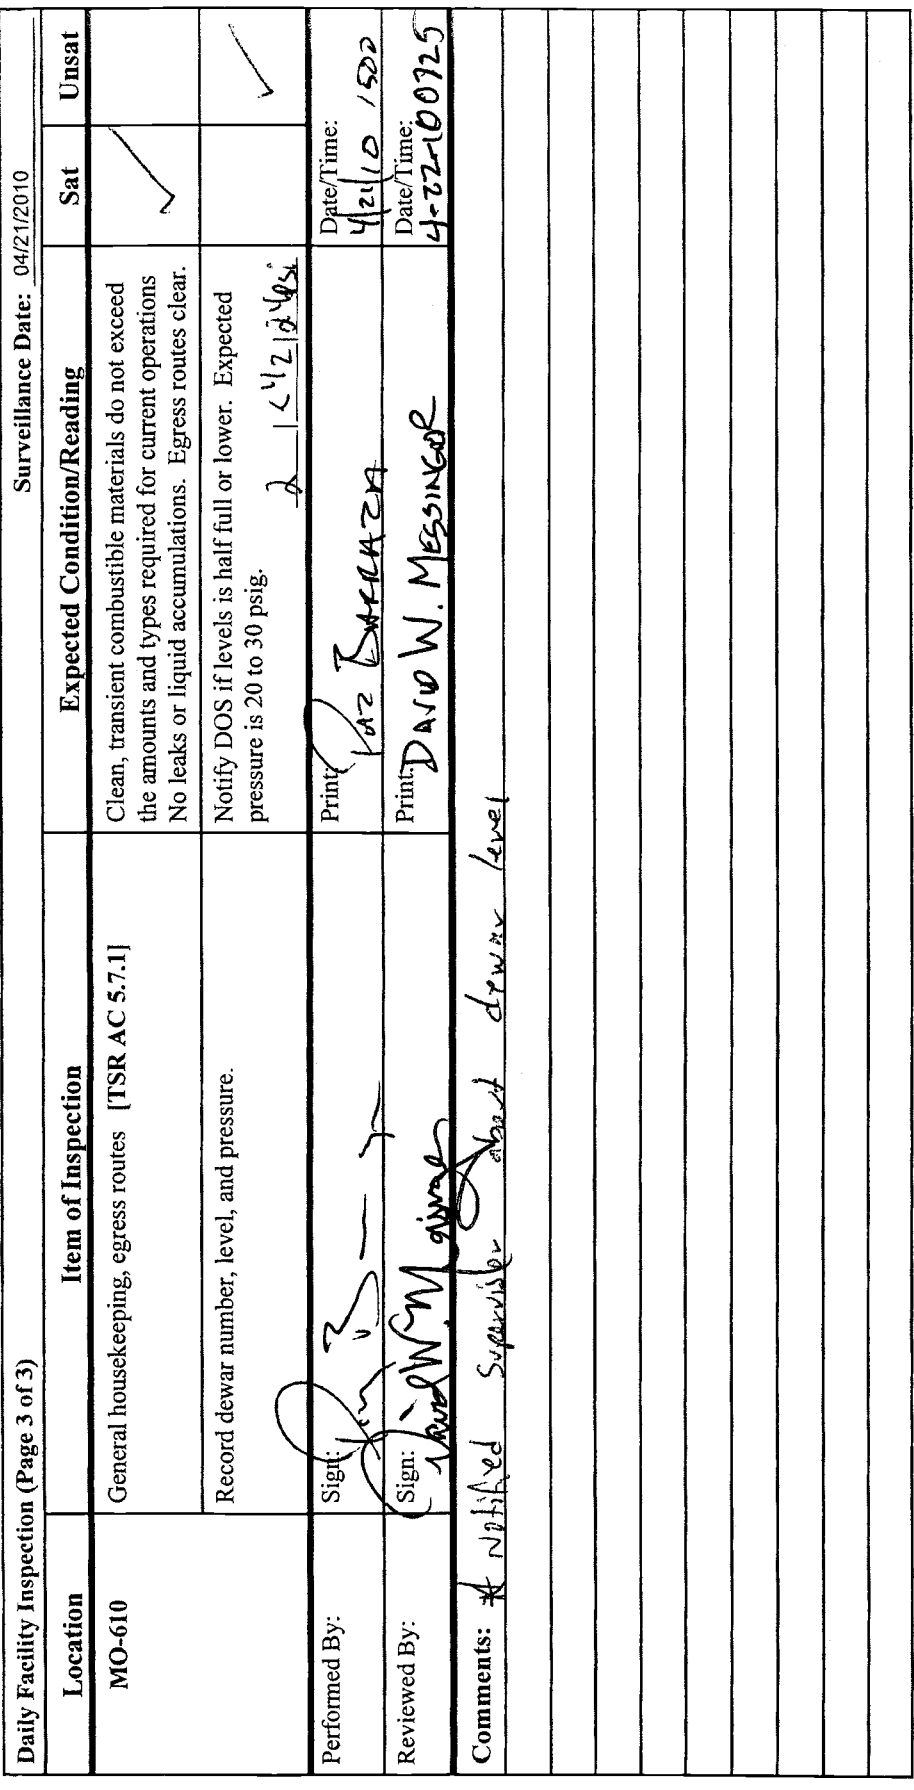 Daily Facility Inspection (Page 3 of 3)
Surveillance Date: 04/21/2010
Location
Item of Inspection
Expected Condition/Reading
Sat
Unsat
MO-610
General housekeeping, egress routes [TSR AC 5.7.1]
Clean, transient combustible materials do not exceed
the amounts and types required for current operations
No leaks or liquid accumulations. Egress routes clear.
✓
Record dewar number, level, and pressure.
Notify DOS if levels is half full or lower. Expected
pressure is 20 to 30 psig.
2 1<1/2 124psi
✓
Performed By:
Sign:
Print: Paz Barraza
Date/Time:
4/21/10 1500
Reviewed By:
Sign: David W. Messinger
Print: DAVID W. MESSINGER
Date/Time:
4-22-10 0725
Comments: * Notified Supervisor about dewar level